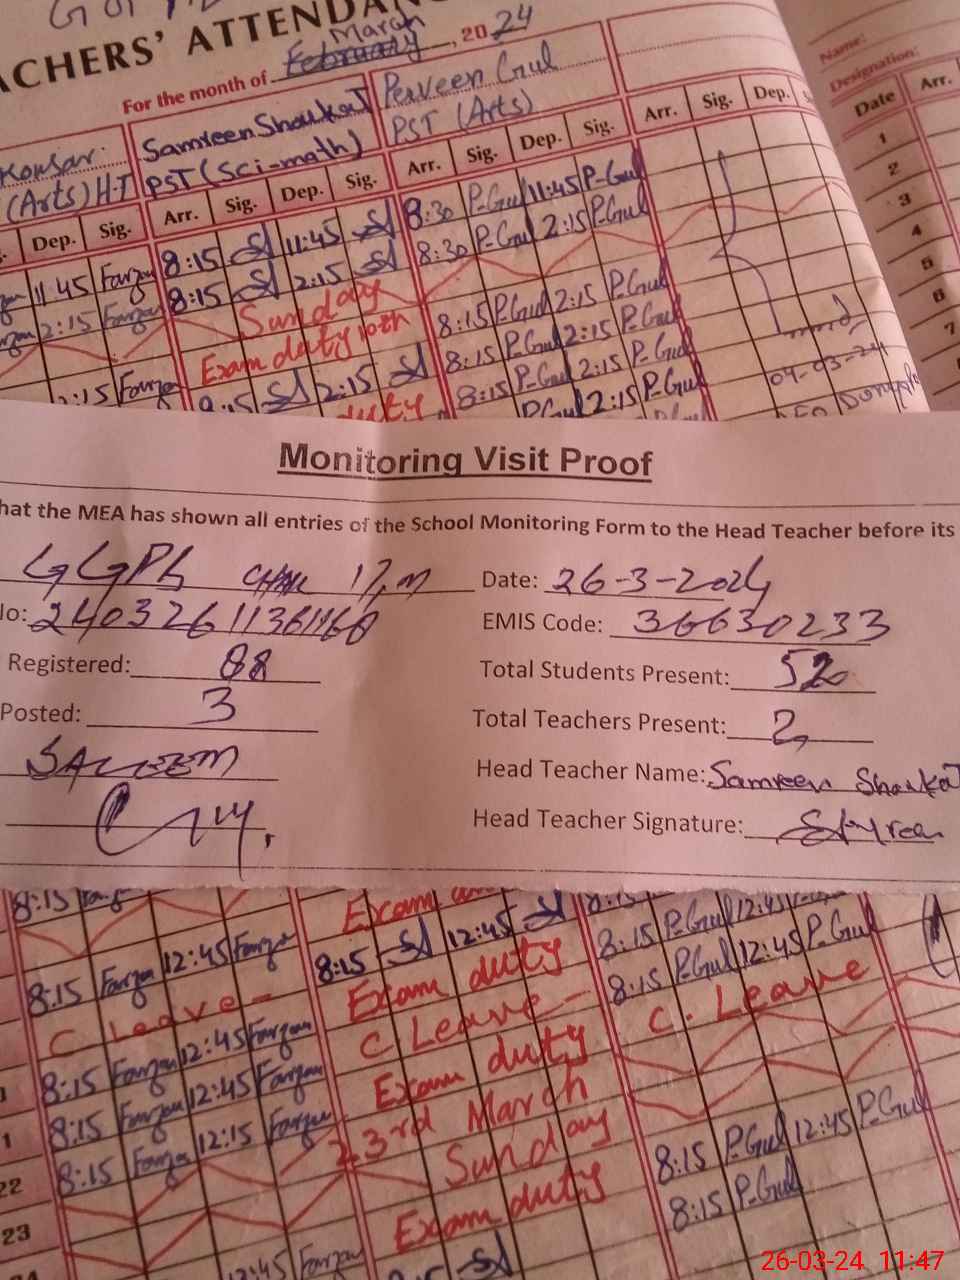 TEACHERS' ATTENDAN
For the month of February March, 2024
Kousar Samreen Shoukat Perveen Gul Name:
(Arts) H-T PST (Sci-math) PST (Arts) Designation:
Dep. Sig. Arr. Sig. Dep. Sig. Arr. Sig. Dep. Sig. Arr. Sig. Dep. Date Arr.
11:45 Farzan 8:15 11:45 8:30 P-Gul 11:45 P-Gul 1
2:15 Farzan 8:15 2:15 8:30 P-Gul 2:15 P-Gul 2
Sunday 3
Exam duty 10th 8:15 P.Gul 2:15 P.Gul 4
2:15 Farzan 8:15 2:15 8:15 P.Gul 2:15 P.Gul 5
duty 8:15 P-Gul 2:15 P.Gul 6
P.Gul 2:15 P.Gul 7
04-03-24
Monitoring Visit Proof
hat the MEA has shown all entries of the School Monitoring Form to the Head Teacher before its
GGPS CHAK 17/M Date: 26-3-2024
No: EMIS Code: 36630233
Registered: 88 Total Students Present: 52
Posted: 3 Total Teachers Present: 2
SALEEM Head Teacher Name: Samreen Shaukat
Head Teacher Signature:
8:15 Exam 8:15 P-Gul 12:45
8:15 Farzan 12:45 Farzan 8:15 12:45 8:15 P-Gul 12:45 P.Gul
C Leave - Exam duty 8:15 P.Gul 12:45 P.Gul
8:15 Farzan 12:45 Farzan C. Leave - C. Leave
8:15 Farzan 12:45 Farzan Exam duty
8:15 Farzan 12:15 Farzan 23rd March
22 Sunday 8:15 P.Gul 12:45 P.Gul
23 Exam duty 8:15 P-Gul
12:45 Farzan
26-03-24 11:47